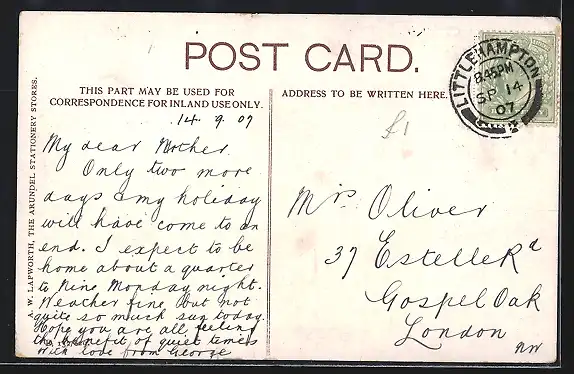 POST CARD.
THIS PART MAY BE USED FOR
CORRESPONDENCE FOR INLAND USE ONLY.
ADDRESS TO BE WRITTEN HERE.
A. W. LAPWORTH, THE ARUNDEL STATIONERY STORES.
LITTLEHAMPTON
8.45PM
SP 14
07
£1
14. 9. 07
My dear Mother
Only two more
days & my holiday
will have come to an
end. I expect to be
home about a quarter
to nine Monday night.
Weather fine but not
quite so much sun today.
Hope you are all feeling
the benefit of quiet times
With love from George
Mrs Oliver
37 Estelle Rd
Gospel Oak
London
NW